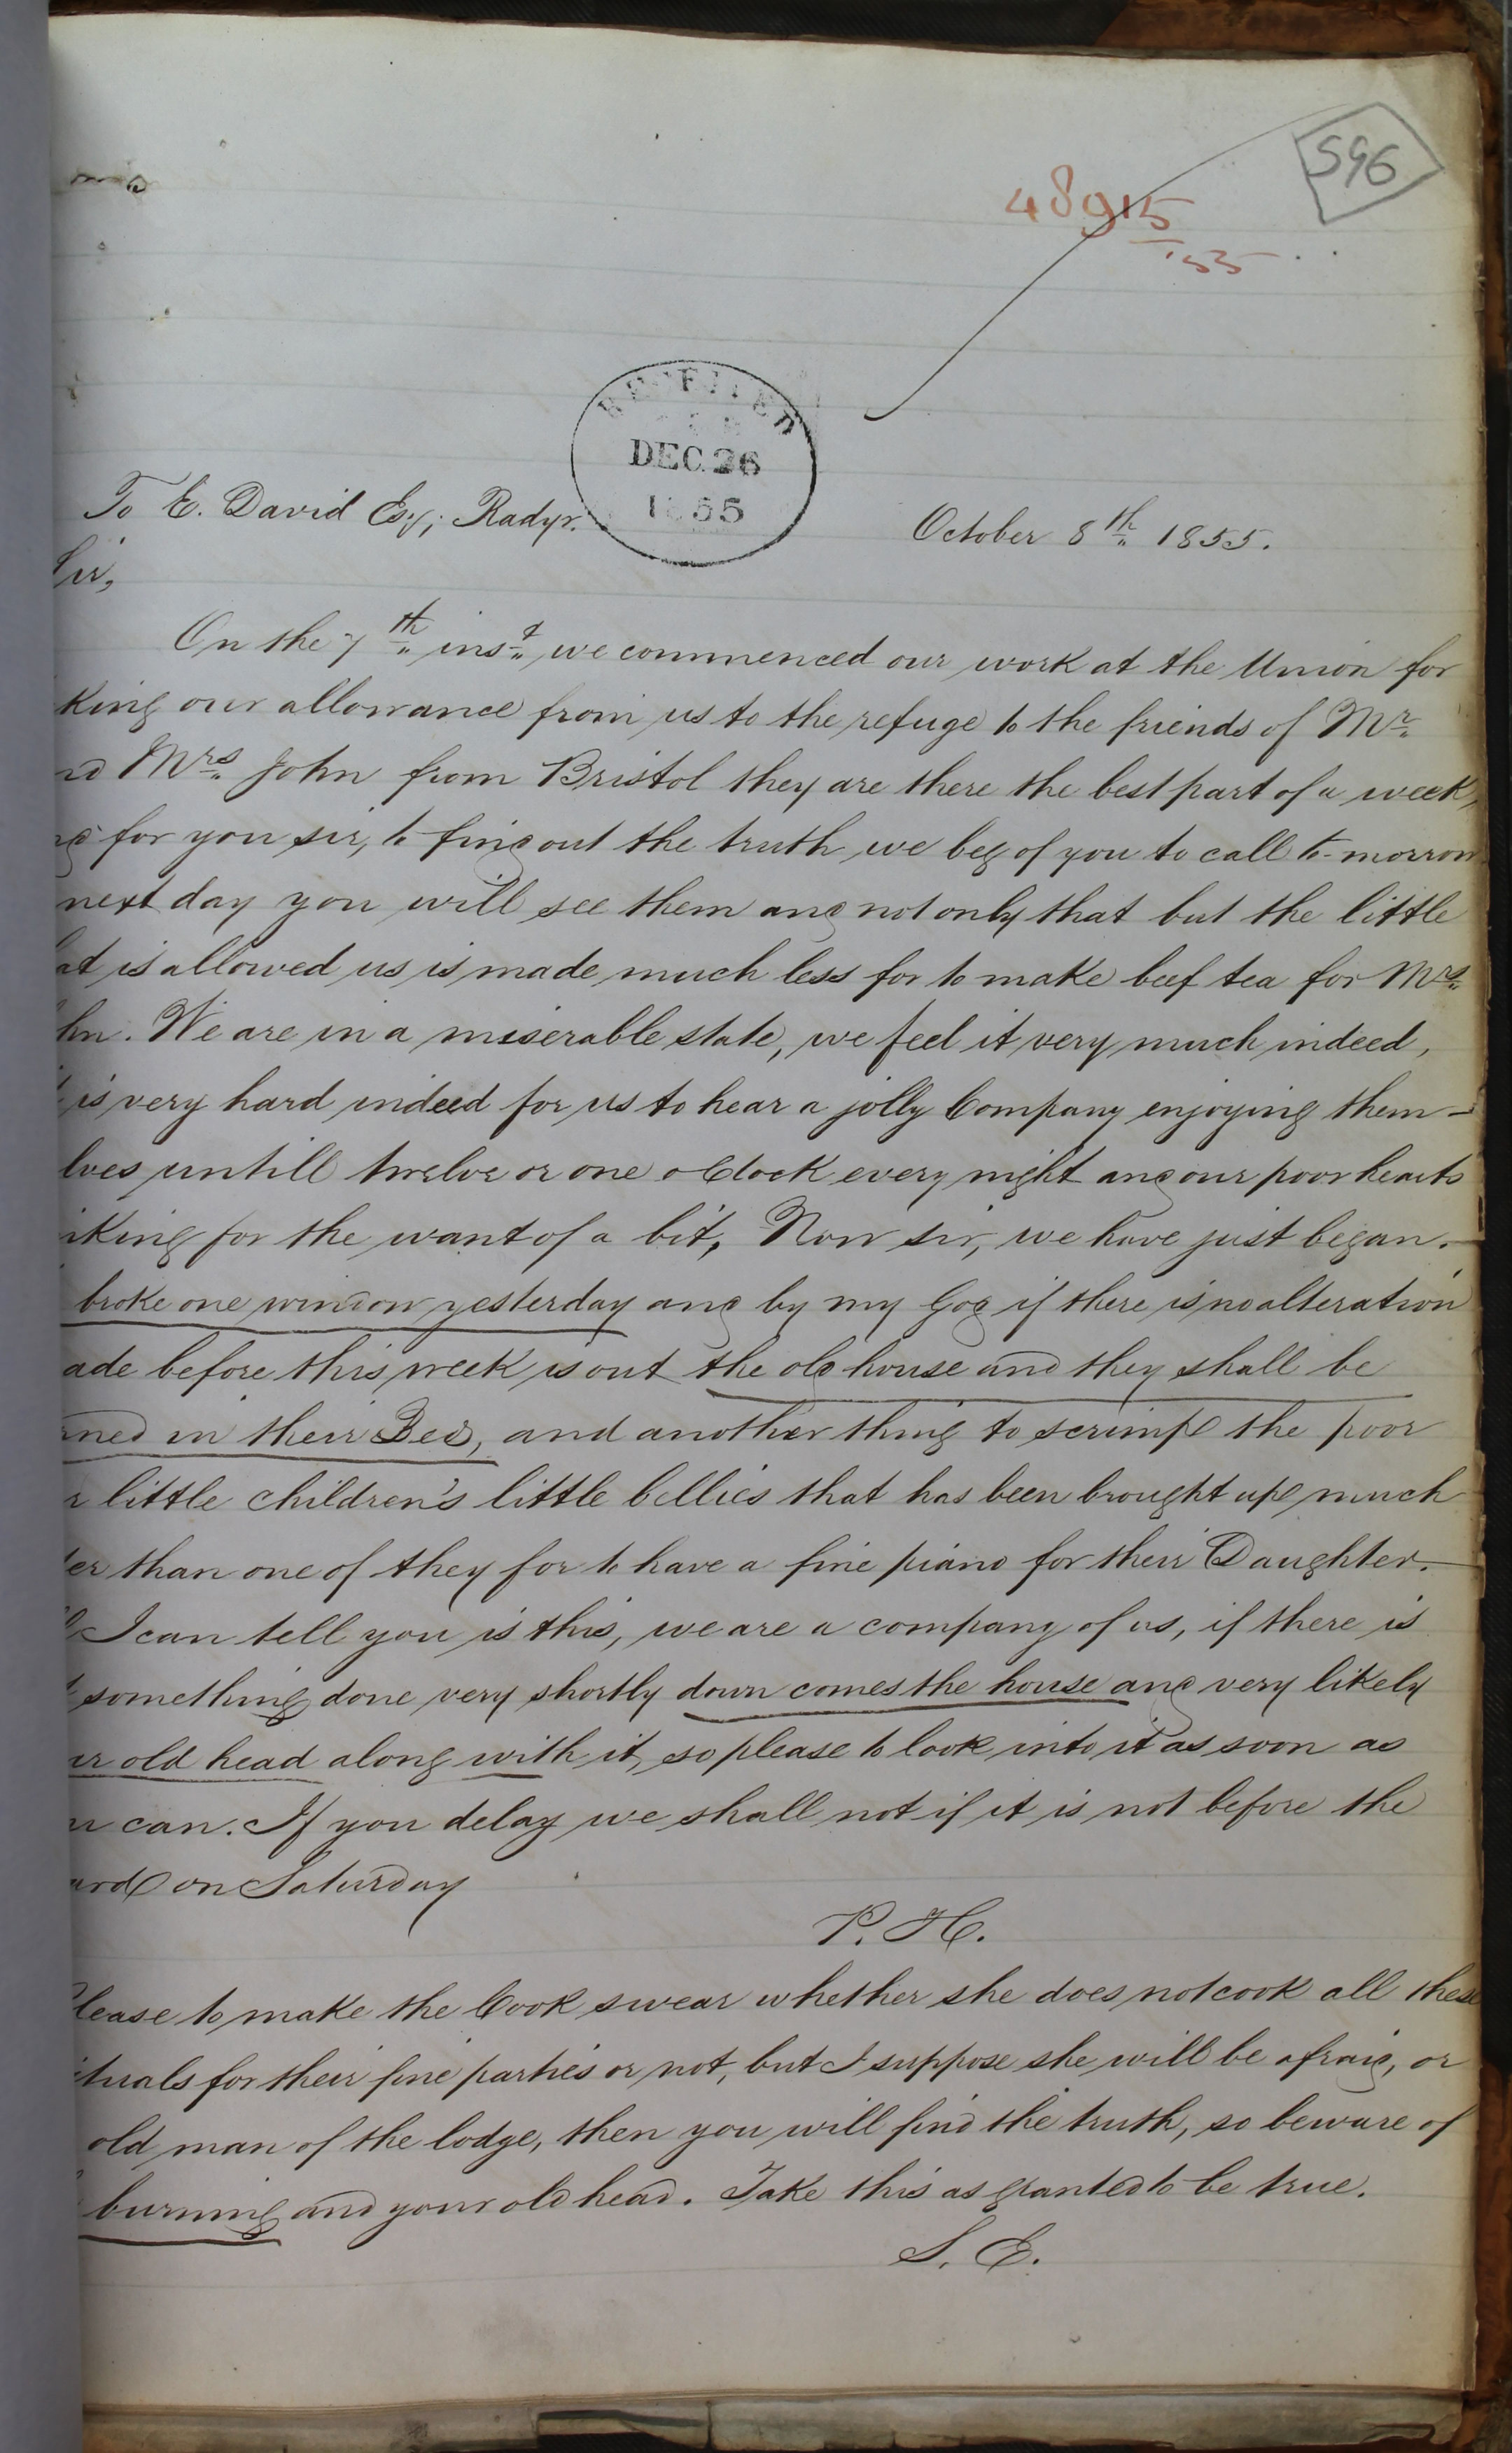 596
48915
'55
RECEIVED
DEC. 26
1855
To E. David Esq; Radyr.
October 8th 1855.
Sir,
On the 7th inst we commenced our work at the Union for
king our allowance from us to the refuge to the friends of Mr.
nd Mrs. John from Bristol they are there the best part of a week,
for you sir, to find out the truth we beg of you to call to-morrow
next day you will see them and not only that but the little
at is allowed us is made much less for to make beef tea for Mrs.
hn. We are in a miserable state, we feel it very much indeed,
is very hard indeed for us to hear a jolly Company enjoying them-
lves untill twelve or one oClock every night and our poor hearts
nking for the want of a bit, Now sir, we have just began.
broke one window yesterday and by my God if there is no alteration
ade before this week is out the old house and they shall be
rned in their Bed, and another thing to scrimp the poor
r little children's little bellies that has been brought up much
ter than one of they for to have a fine piano for their Daughter.
I can tell you is this, we are a company of us, if there is
something done very shortly down comes the house and very likely
ur old head along with it, so please to look into it as soon as
u can. If you delay we shall not if it is not before the
ard on Saturday
P. H.
Please to make the Cook swear whether she does not cook all these
ctuals for their fine parties or not, but I suppose she will be afraid, or
old man of the lodge, then you will find the truth, so beware of
burning and your old head. Take this as granted to be true.
S. E.